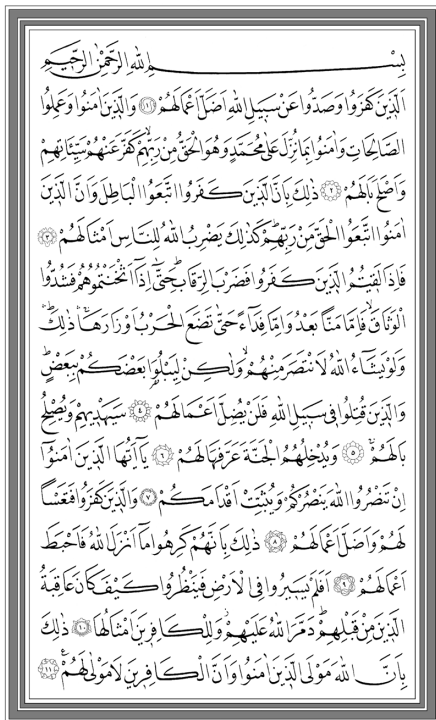 بِسْمِ اللهِ الرَّحْمٰنِ الرَّحٖيمِ
اَلَّذٖينَ كَفَرُوا وَصَدُّوا عَنْ سَبٖيلِ اللهِ اَضَلَّ اَعْمَالَهُمْ ﴿١﴾ وَالَّذٖينَ اٰمَنُوا وَعَمِلُوا
الصَّالِحَاتِ وَاٰمَنُوا بِمَا نُزِّلَ عَلٰى مُحَمَّدٍ وَهُوَ الْحَقُّ مِنْ رَبِّهِمْۙ كَفَّرَ عَنْهُمْ سَيِّـَٔاتِهِمْ
وَاَصْلَحَ بَالَهُمْ ﴿٢﴾ ذٰلِكَ بِاَنَّ الَّذٖينَ كَفَرُوا اتَّبَعُوا الْبَاطِلَ وَاَنَّ الَّذٖينَ
اٰمَنُوا اتَّبَعُوا الْحَقَّ مِنْ رَبِّهِمْۜ كَذٰلِكَ يَضْرِبُ اللهُ لِلنَّاسِ اَمْثَالَهُمْ ﴿٣﴾
فَاِذَا لَقٖيتُمُ الَّذٖينَ كَفَرُوا فَضَرْبَ الرِّقَابِۜ حَتّٰٓى اِذَٓا اَثْخَنْتُمُوهُمْ فَشُدُّوا
الْوَثَاقَۙ فَاِمَّا مَنًّا بَعْدُ وَاِمَّا فِدَٓاءً حَتّٰى تَضَعَ الْحَرْبُ اَوْزَارَهَاۚۛ ذٰلِكَۜۛ
وَلَوْ يَشَٓاءُ اللهُ لَانْتَصَرَ مِنْهُمْۙ وَلٰكِنْ لِيَبْلُوَ۬ا بَعْضَكُمْ بِبَعْضٍۜ
وَالَّذٖينَ قُتِلُوا فٖى سَبٖيلِ اللهِ فَلَنْ يُضِلَّ اَعْمَالَهُمْ ﴿٤﴾ سَيَهْدٖيهِمْ وَيُصْلِحُ
بَالَهُمْۚ ﴿٥﴾ وَيُدْخِلُهُمُ الْجَنَّةَ عَرَّفَهَا لَهُمْ ﴿٦﴾ يَٓا اَيُّهَا الَّذٖينَ اٰمَنُٓوا
اِنْ تَنْصُرُوا اللهَ يَنْصُرْكُمْ وَيُثَبِّتْ اَقْدَامَكُمْ ﴿٧﴾ وَالَّذٖينَ كَفَرُوا فَتَعْسًا
لَهُمْ وَاَضَلَّ اَعْمَالَهُمْ ﴿٨﴾ ذٰلِكَ بِاَنَّهُمْ كَرِهُوا مَٓا اَنْزَلَ اللهُ فَاَحْبَطَ
اَعْمَالَهُمْ ﴿٩﴾ اَفَلَمْ يَسٖيرُوا فِى الْاَرْضِ فَيَنْظُرُوا كَيْفَ كَانَ عَاقِبَةُ
الَّذٖينَ مِنْ قَبْلِهِمْۜ دَمَّرَ اللهُ عَلَيْهِمْۘ وَلِلْكَافِرٖينَ اَمْثَالُهَا ﴿١٠﴾ ذٰلِكَ
بِاَنَّ اللهَ مَوْلَى الَّذٖينَ اٰمَنُوا وَاَنَّ الْكَافِرٖينَ لَا مَوْلٰى لَهُمْ۟ ﴿١١﴾